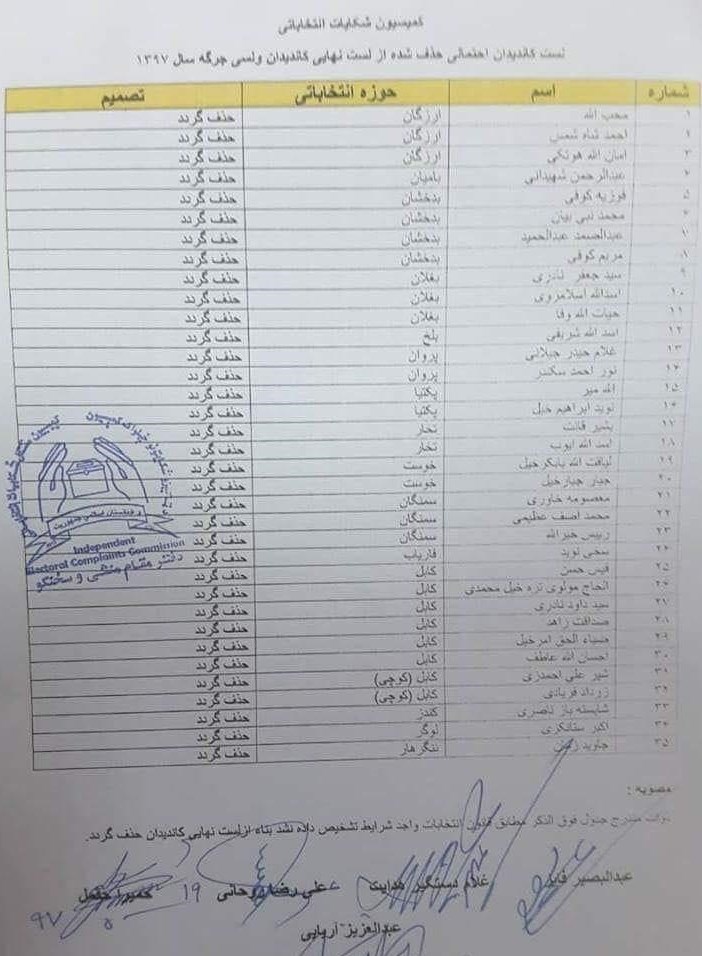 کمیسیون شکایات انتخاباتی
لست کاندیدان احتمالی حذف شده از لست نهایی کاندیدان ولسی جرگه سال ۱۳۹۷
شماره اسم حوزه انتخاباتی تصمیم
۱ محب الله ارزگان حذف گردد
۲ احمد شاه شمس ارزگان حذف گردد
۳ امان الله هوتکی ارزگان حذف گردد
۴ عبدالرحمن شهیدانی بامیان حذف گردد
۵ فوزیه کوفی بدخشان حذف گردد
۶ محمد نبی بیان بدخشان حذف گردد
۷ عبدالصمد عبدالحمید بدخشان حذف گردد
۸ مریم کوفی بدخشان حذف گردد
۹ سید جعفر نادری بغلان حذف گردد
۱۰ اسدالله اسلامزوی بغلان حذف گردد
۱۱ حیات الله وفا بغلان حذف گردد
۱۲ اسد الله شریفی بلخ حذف گردد
۱۳ غلام حیدر جیلانی پروان حذف گردد
۱۴ نور احمد سکندر پروان حذف گردد
۱۵ الله میر پکتیا حذف گردد
۱۶ نوید ابراهیم خیل پکتیا حذف گردد
۱۷ بشیر قانت تخار حذف گردد
۱۸ اسد الله ایوب تخار حذف گردد
۱۹ لیاقت الله بابکرخیل خوست حذف گردد
۲۰ جبار جبارخیل خوست حذف گردد
۲۱ معصومه خاوری سمنگان حذف گردد
۲۲ محمد آصف عظیمی سمنگان حذف گردد
۲۳ رییس خیرالله سمنگان حذف گردد
۲۴ سخی نوید فاریاب حذف گردد
۲۵ قیس حسن کابل حذف گردد
۲۶ الحاج مولوی تره خیل محمدی کابل حذف گردد
۲۷ سید داود نادری کابل حذف گردد
۲۸ صداقت زاهد کابل حذف گردد
۲۹ ضیاء الحق امرخیل کابل حذف گردد
۳۰ احسان الله عاطف کابل حذف گردد
۳۱ شیر علی احمدزی کابل (کوچی) حذف گردد
۳۲ زرداد فریادی کابل (کوچی) حذف گردد
۳۳ شایسته باز ناصری کندز حذف گردد
۳۴ اکبر ستانکزی لوگر حذف گردد
۳۵ جاوید ننگرهار حذف گردد
Independent
Electoral Complaints Commission
دفتر مقام منشی و سخنگو
مصوبه :
مندرج جدول فوق الذکر مطابق قانون انتخابات واجد شرایط تشخیص داده نشد بناء ازلست نهایی کاندیدان حذف گردد.
عبدالبصیر فایز غلام دستگیر هدایت علی رضا روحانی حمیرا حقمل
عبدالعزیز آریایی